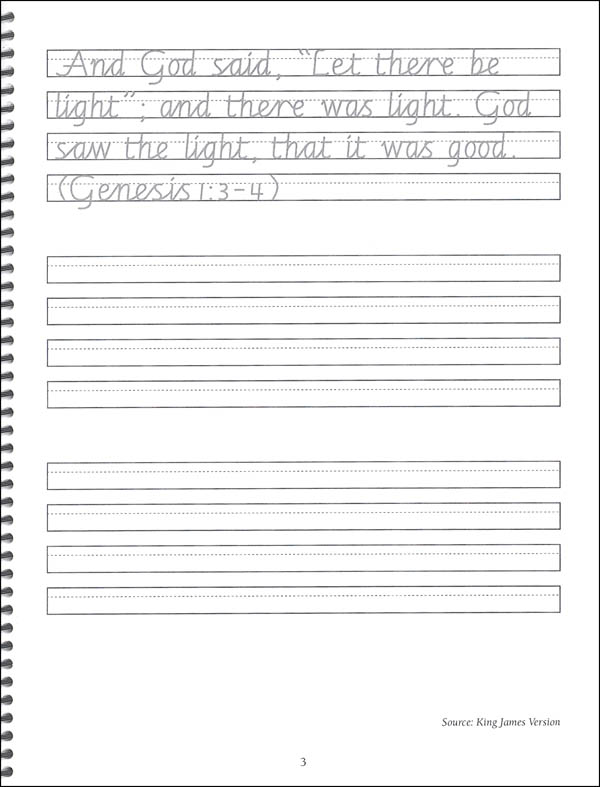 And God said, “Let there be
light”; and there was light. God
saw the light, that it was good.
(Genesis 1:3-4)
Source: King James Version
3